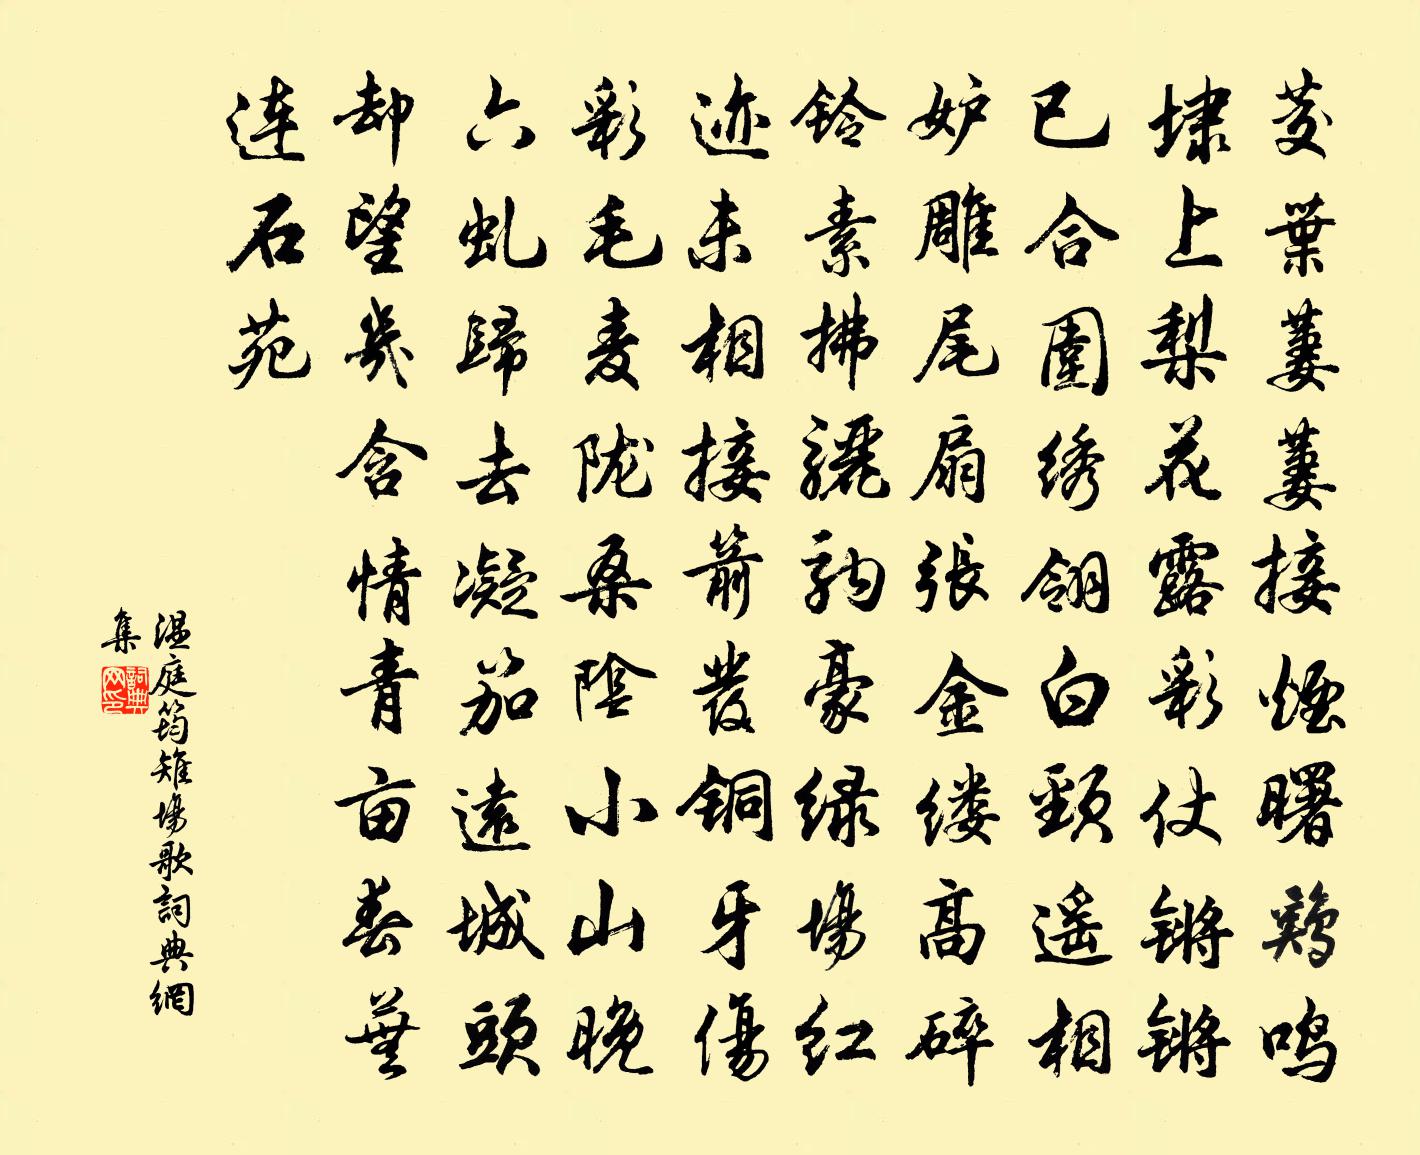 茭葉萋萋接煙曙鷄鸣
埭上梨花露彩仗锵锵
已合圍绣翎白頸遥相
妒雕尾扇張金缕高碎
铃素拂驪駒豪绿場红
迹未相接箭發铜牙傷
彩毛麦陇桑陰小山晚
六虬歸去凝笳遠城頭
却望幾含情青亩春蕪
連石苑
温庭筠雉場歌詞典網
集
詞典网印